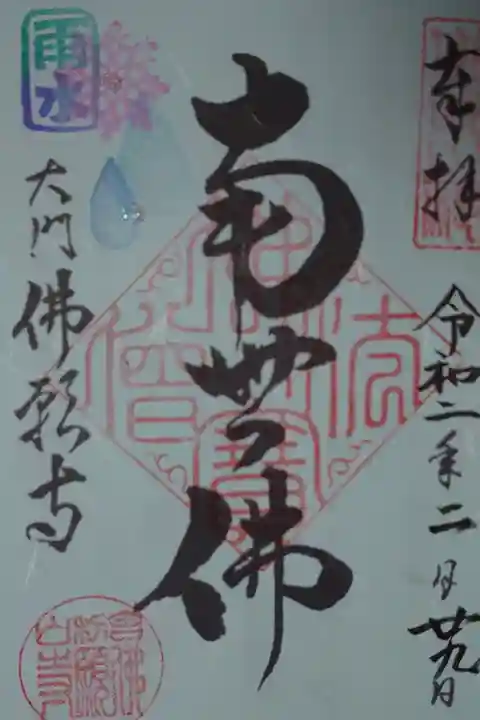 奉拝
令和二年二月廿九日
南無佛
雨水
大門 佛願寺
佛法僧寳